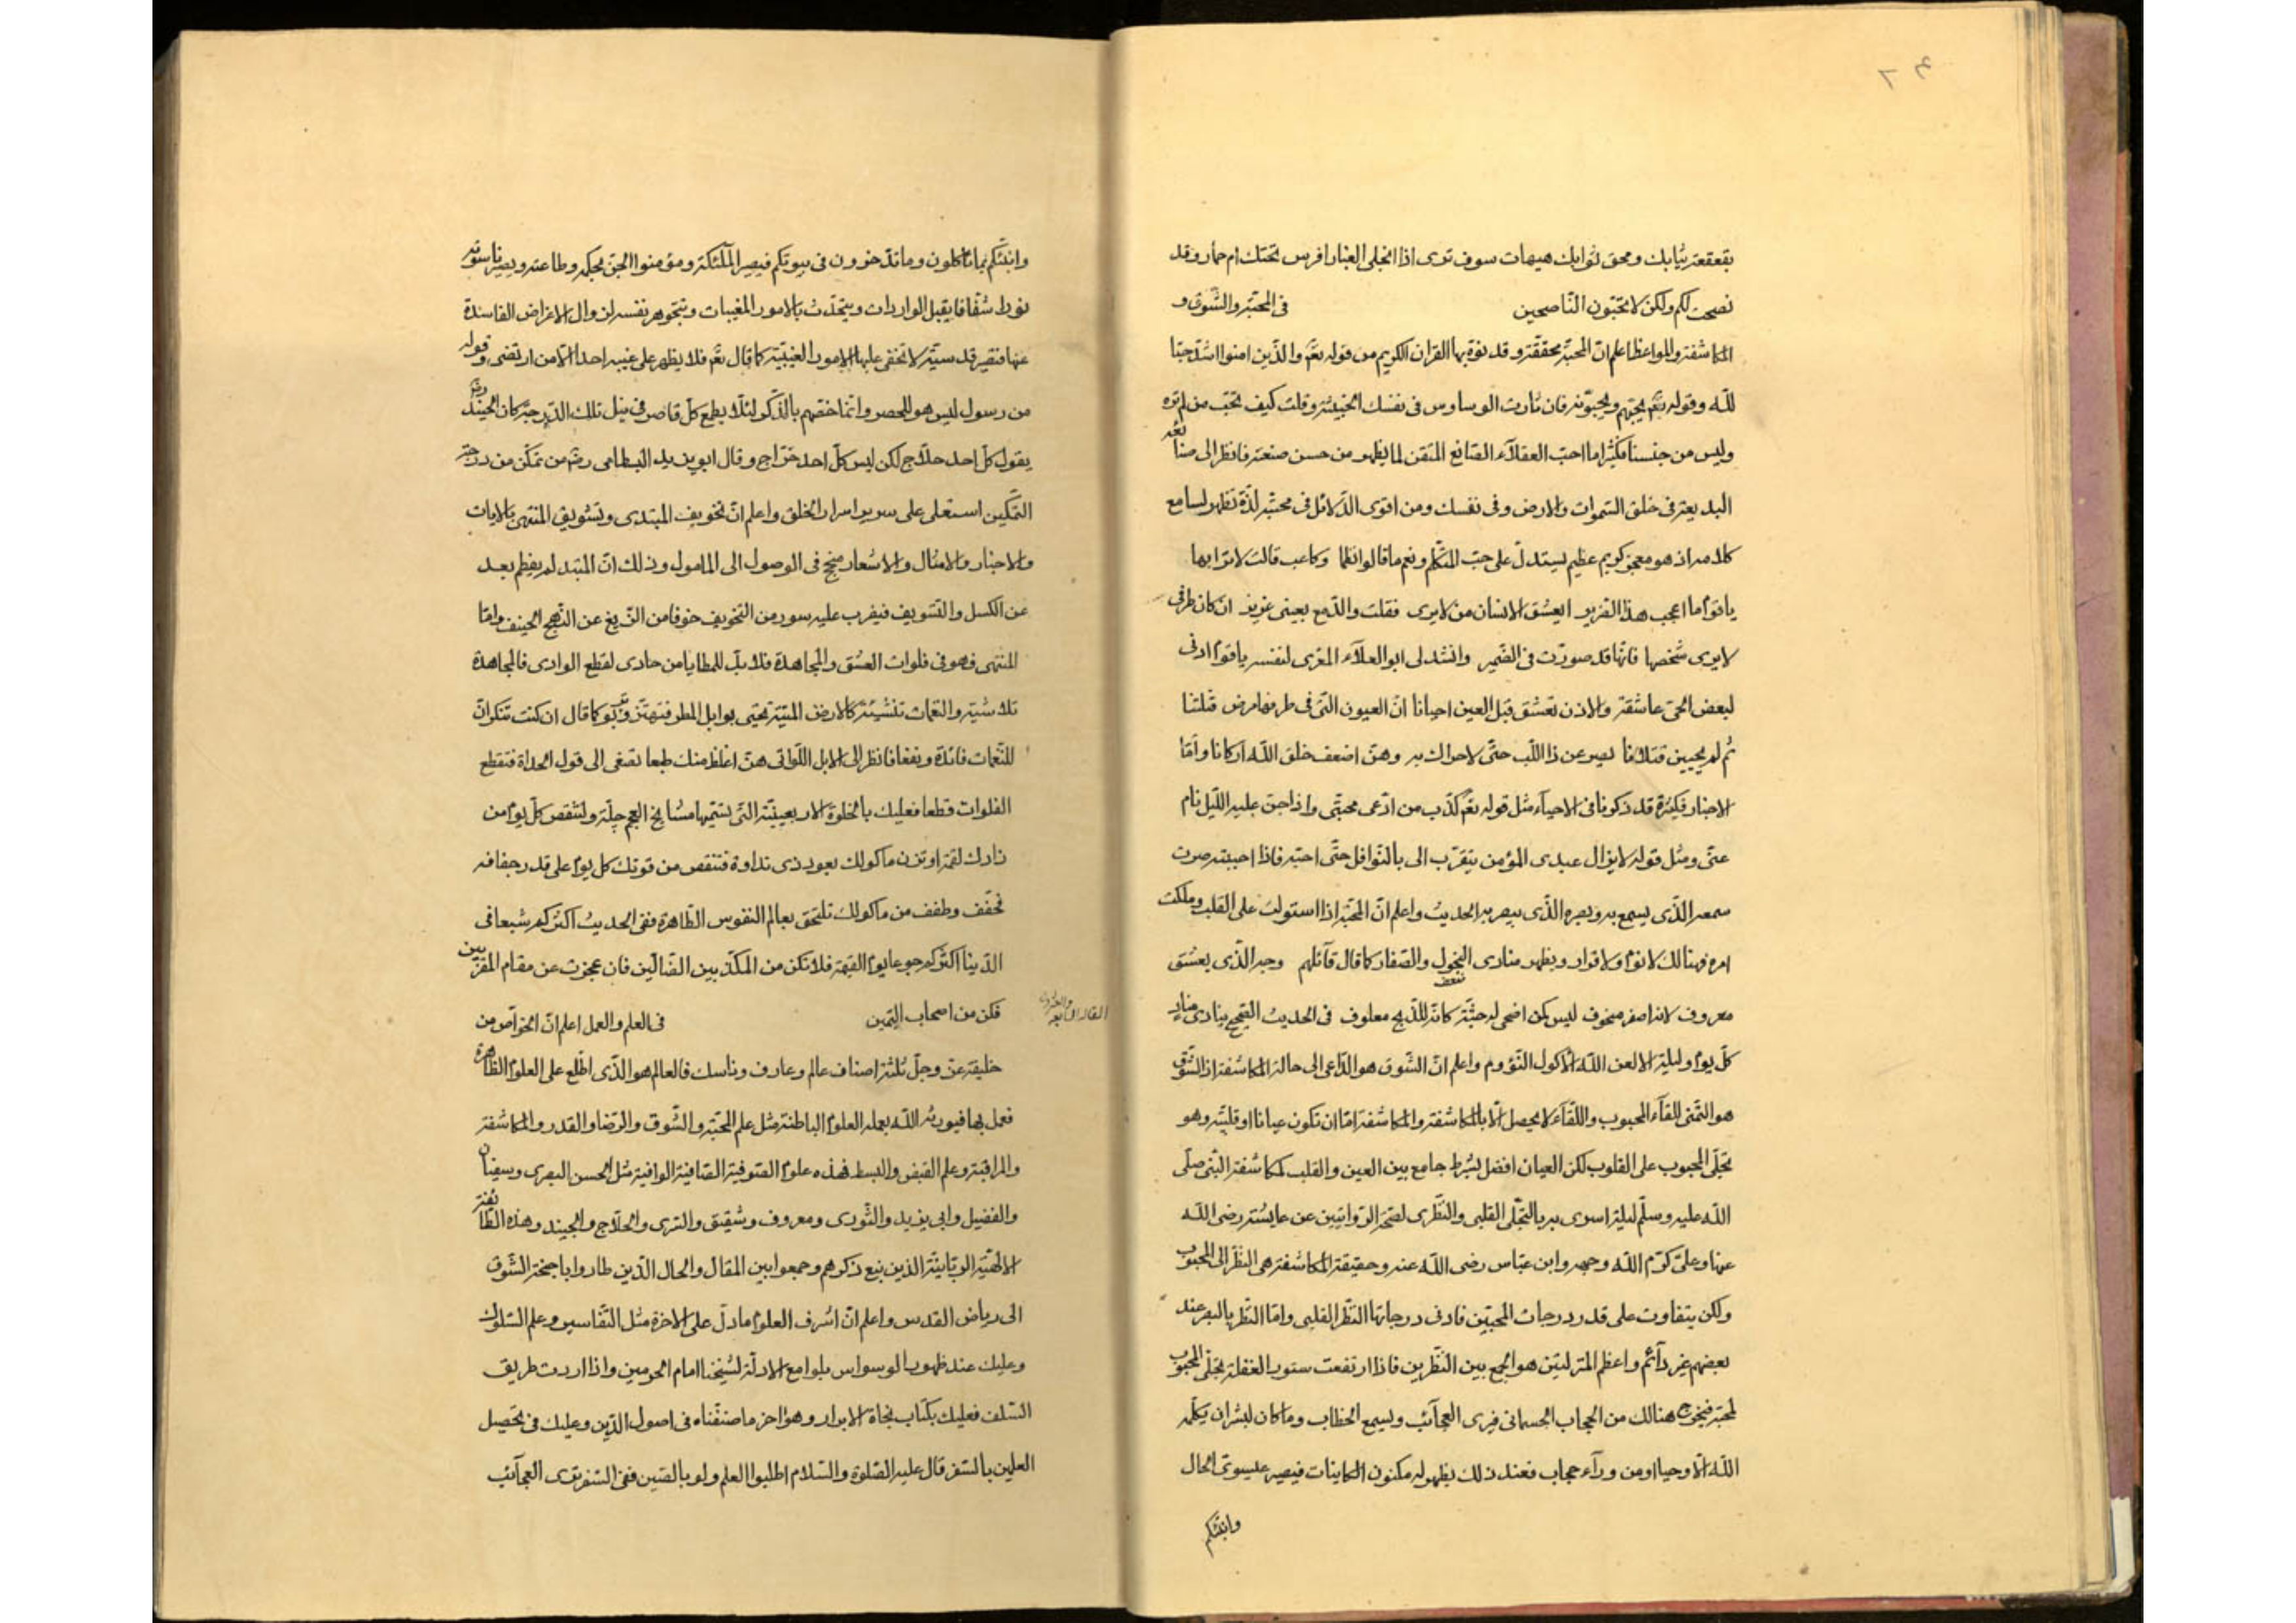 ٣٦
بقعقعة ثيابك ومحق ثوابك هيهات سوف ترى اذا انجلى الغبار افرس تحتك ام حمار وقد
نصحت لكم ولكن لا تحبّون النّاصحين في المحبّة والشّوق و
المكاشفة والمواعظ اعلم انّ المحبّة محققة وقد نوّه بها القران الكريم من قوله تعٓ والّذين امنوا اشدّ حبّا
للّه وقوله تعٓ يحبّهم ويحبّونه فان ثارت الوساوس في نفسك الخبيثة وقلت كيف تحبّ من لم تره
وليس من جنسنا فكثيرا ما احبّ العقلآء الصّانع المتقن لما يظهر من حسن صنعته فانظر الى صنايعه
البديعة في خلق السّموات والارض وفي نفسك ومن اقوى الدّلائل في محبّته لذّة تظهر لسامع
كلامه اذ هو معجز كريم عظيم يستدلّ على حبّ المتكلّم ونعم ما قالوا نظما وكاعب قالت لاترابها
يا قوم ما اعجب هذا الضّرير ايعشق الانسان من لا يرى فقلت والدّمع بعيني غزير ان كان طرفي
لا يرى شخصها فانّها قد صوّرت في الضّمير وانشد لي ابو العلآء المعّرى لنفسه يا قوم اذني
لبعض الحيّ عاشقة والاذن تعشق قبل العين احيانا انّ العيون الّتي في طرفها مرض قتلتنا
ثم لم يحيين قتلانا يصرعن ذا اللّب حتّى لا حراك به وهنّ اضعف خلق اللّه اركانا وامّا
الاخبار فكثيرة قد ذكرنا في الاحيآء مثل قوله تعٓ كذب من ادّعى محبّتي واذا جنّ عليه اللّيل نام
عنّي ومثل قوله لا يزال عبدي المؤمن يتقرّب الى بالنّوافل حتّى احبّه فاذا احببته صرت
سمعه الّذي يسمع به وبصره الّذي يبصر به الحديث واعلم انّ المحبّة اذا استولت على القلب وملكت
امره فهنالك لا نوم ولا قرار ويظهر منادى النّحول والصّفار كما قال قآئلهم وجه الّذي يعشق
معروف لانه اصفر منحوف ليس كمن اضحى له جثّة كانّه للذّبح معلوف في الحديث الصّحيح ينادي مناد
كلّ يوم وليلة الا لعن اللّه الاكول النّؤوم واعلم انّ الشّوق هو الدّاعي الى حالة المكاشفة اذ الشّوق
هو التّمنّي للقآء المحبوب واللّقآء لا يحصل الّا بالمكاشفة والمكاشفة امّا ان تكون عيانا او قلبيّة وهو
تجلّى المحبوب على القلوب لكن العيان افضل بشرط جامع بين العين والقلب كمكاشفة النّبي صلّى
اللّه عليه وسلّم ليلة اسرى به بالتّجلّى القلبي والنّظري لصحّة الرّوايتين عن عايشة رضى اللّه
عنها وعليّ كرّم اللّه وجهه وابن عبّاس رضى اللّه عنه وحقيقة المكاشفة هي النّظر الى المحبوب
ولكن يتفاوت على قدر درجات المحبّين فادنى درجاتها النّظر القلبي وامّا النّظر بالبصر عند
بعضهم غير دآئم واعظم المنزلتين هو الجمع بين النّظرين فاذا ارتفعت ستور الغفلة تجلّى المحبوب
لمحبّه فيخرج هنالك من الحجاب الجسماني فيرى العجآئب ويسمع الخطاب وما كان لبشر ان يكلّمه
اللّه الّا وحيا او من ورآء حجاب فعند ذلك يظهر له مكنون الكاينات فيصير عيسوىّ الحال
وانبّئكم
وانبّئكم بما تاكلون وما تدّخرون في بيوتكم فيصير الملٓئكة ومؤمنوا الجنّ بحكمه وطاعته ويصير ناسوته
نوره شفّافا يقبل الواردات ويتحدّث بالامور المغيبات ويتجوهر نفسه لزوال الاعراض الفاسدة
عنها فتصير قدسيّة لا تخفى عليها الامور الغيبيّة كما قال تعٓ فلا يظهر على غيبه احدا الّا من ارتضى وقوله
من رسول ليس هو للحصر وانّما خصّهم بالذّكر لئلّا يطمع كلّ قاصر في نيل تلك الدّرجة كان الجنيد رض
يقول كلّ احد حلّاج لكن ليس كلّ احد خرّاج وقال ابو يزيد البسطامى رض من تمكّن من درجة
التّمكين استعلى على سرير اسرار الخلق واعلم انّ تخويف المبتدى وتشويق المنتهى بالايات
والاخبار والامثال والاشعار منجح في الوصول الى المامول وذلك انّ المبتد لم يفطم بعد
عن الكسل والتّسويف فيضرب عليه سور من التّخويف خوفا من الزّيغ عن النّهج الحنيف وامّا
المنتهى فهو في فلوات العشق والمجاهدة فلا بدّ للمطايا من حادى لقطع الوادى فالمجاهدة
تلاشيه والنّغمات تنشيه كالارض الميّتة تحيى بوابل المطر فتهتزّ وتربو كما قال ان كنت تنكر انّ
للنّغمات فائدة ونفعا فانظر الى الابل اللّواتي هنّ اغلظ منك طبعا تصغى الى قول الحداة فتقطع
الفلوات قطعا فعليك بالخلوة الاربعينيّة الّتي تسمّيها مشايخ العجم چلّة ولتنقص كلّ يوم من
زادك لقمة او تزن ماكولك بعود ذى نداوة فتنقص من قوتك كل يوم على قدر جفافه
فخفّف وطفف من ماكولك تلتحق بعالم النفوس الطّاهرة ففي الحديث اكثركم شبعا في
الدّينا اكثركم جوعا يوم القيٰمة فلا تكن من المكذّبين الضّالّين فان عجزت عن مقام المقرّبين
فكن من اصحاب اليّمين في العلم والعمل اعلم انّ الخواصّ من
المقالة الرابعة والعشرون
خليقته عزّ وجلّ ثلثة اصناف عالم وعارف وناسك فالعالم هو الّذي اطّلع على العلوم الظّاهرة
فعمل بها فيورثه اللّه بعمله العلوم الباطنة مثل علم المحبّة والشّوق والرّضا والقدر والمكاشفة
والمراقبة وعلم القبض والبسط فهذه علوم الصّوفيّة الصّافية الوافية مثل الحسن البصرى وسفيان
والفضيل وابي يزيد والثّورى ومعروف وشقيق والسّرى والحلّاج والجنيد وهذه الطّائفة
الالٰهيّة الرّبّانيّة الذين ينبع ذكرهم وجمعوا بين المقال والحال الّذين طاروا باجنحة الشّوق
الى رياض القدس واعلم انّ اشرف العلوم ما دلّ على الاخرة مثل التّفاسير وعلم السّلوك
وعليك عند ظهور الوسواس بلوامع الادلّة لشيخنا امام الحرمين واذا اردت طريق
السّلف فعليك بكتاب نجاة الابرار وهو اخر ما صنّفناه في اصول الدّين وعليك في تحصيل
العلمين بالسّفر قال عليه الصّلوة والسّلام اطلبوا العلم ولو بالصّين ففي السّفر ترى العجآئب